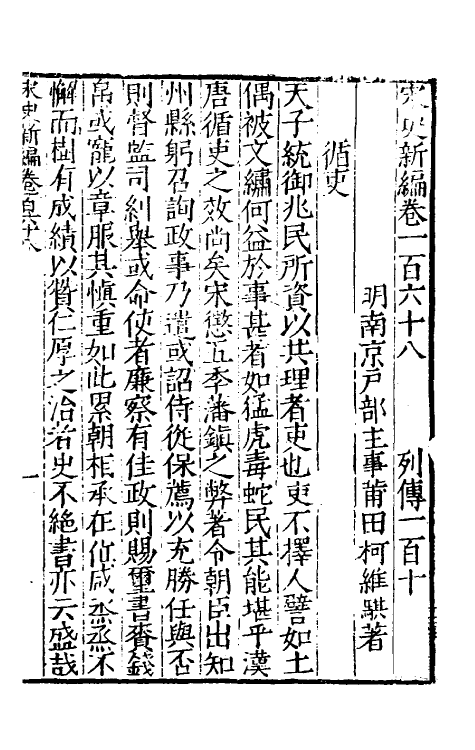 宋史新編卷一百六十八　　列傳一百十
明南京戸部主事莆田柯維騏著
循吏
天子統御兆民所資以共理者吏也吏不擇人譬如土
偶被文繡何益於事甚者如猛虎毒蛇民其能堪乎漢
唐循吏之效尚矣宋懲五季藩鎮之弊著令朝臣出知
州縣躬召詢政事乃遣或詔侍從保薦以充勝任與否
則督監司糾舉或命使者廉察有佳政則賜璽書賚錢
帛或寵以章服其慎重如此累朝相承在位咸烝烝不
懈而樹有成績以贊仁厚之治若史不絶書亦云盛哉
宋史新編卷百六十八　　一